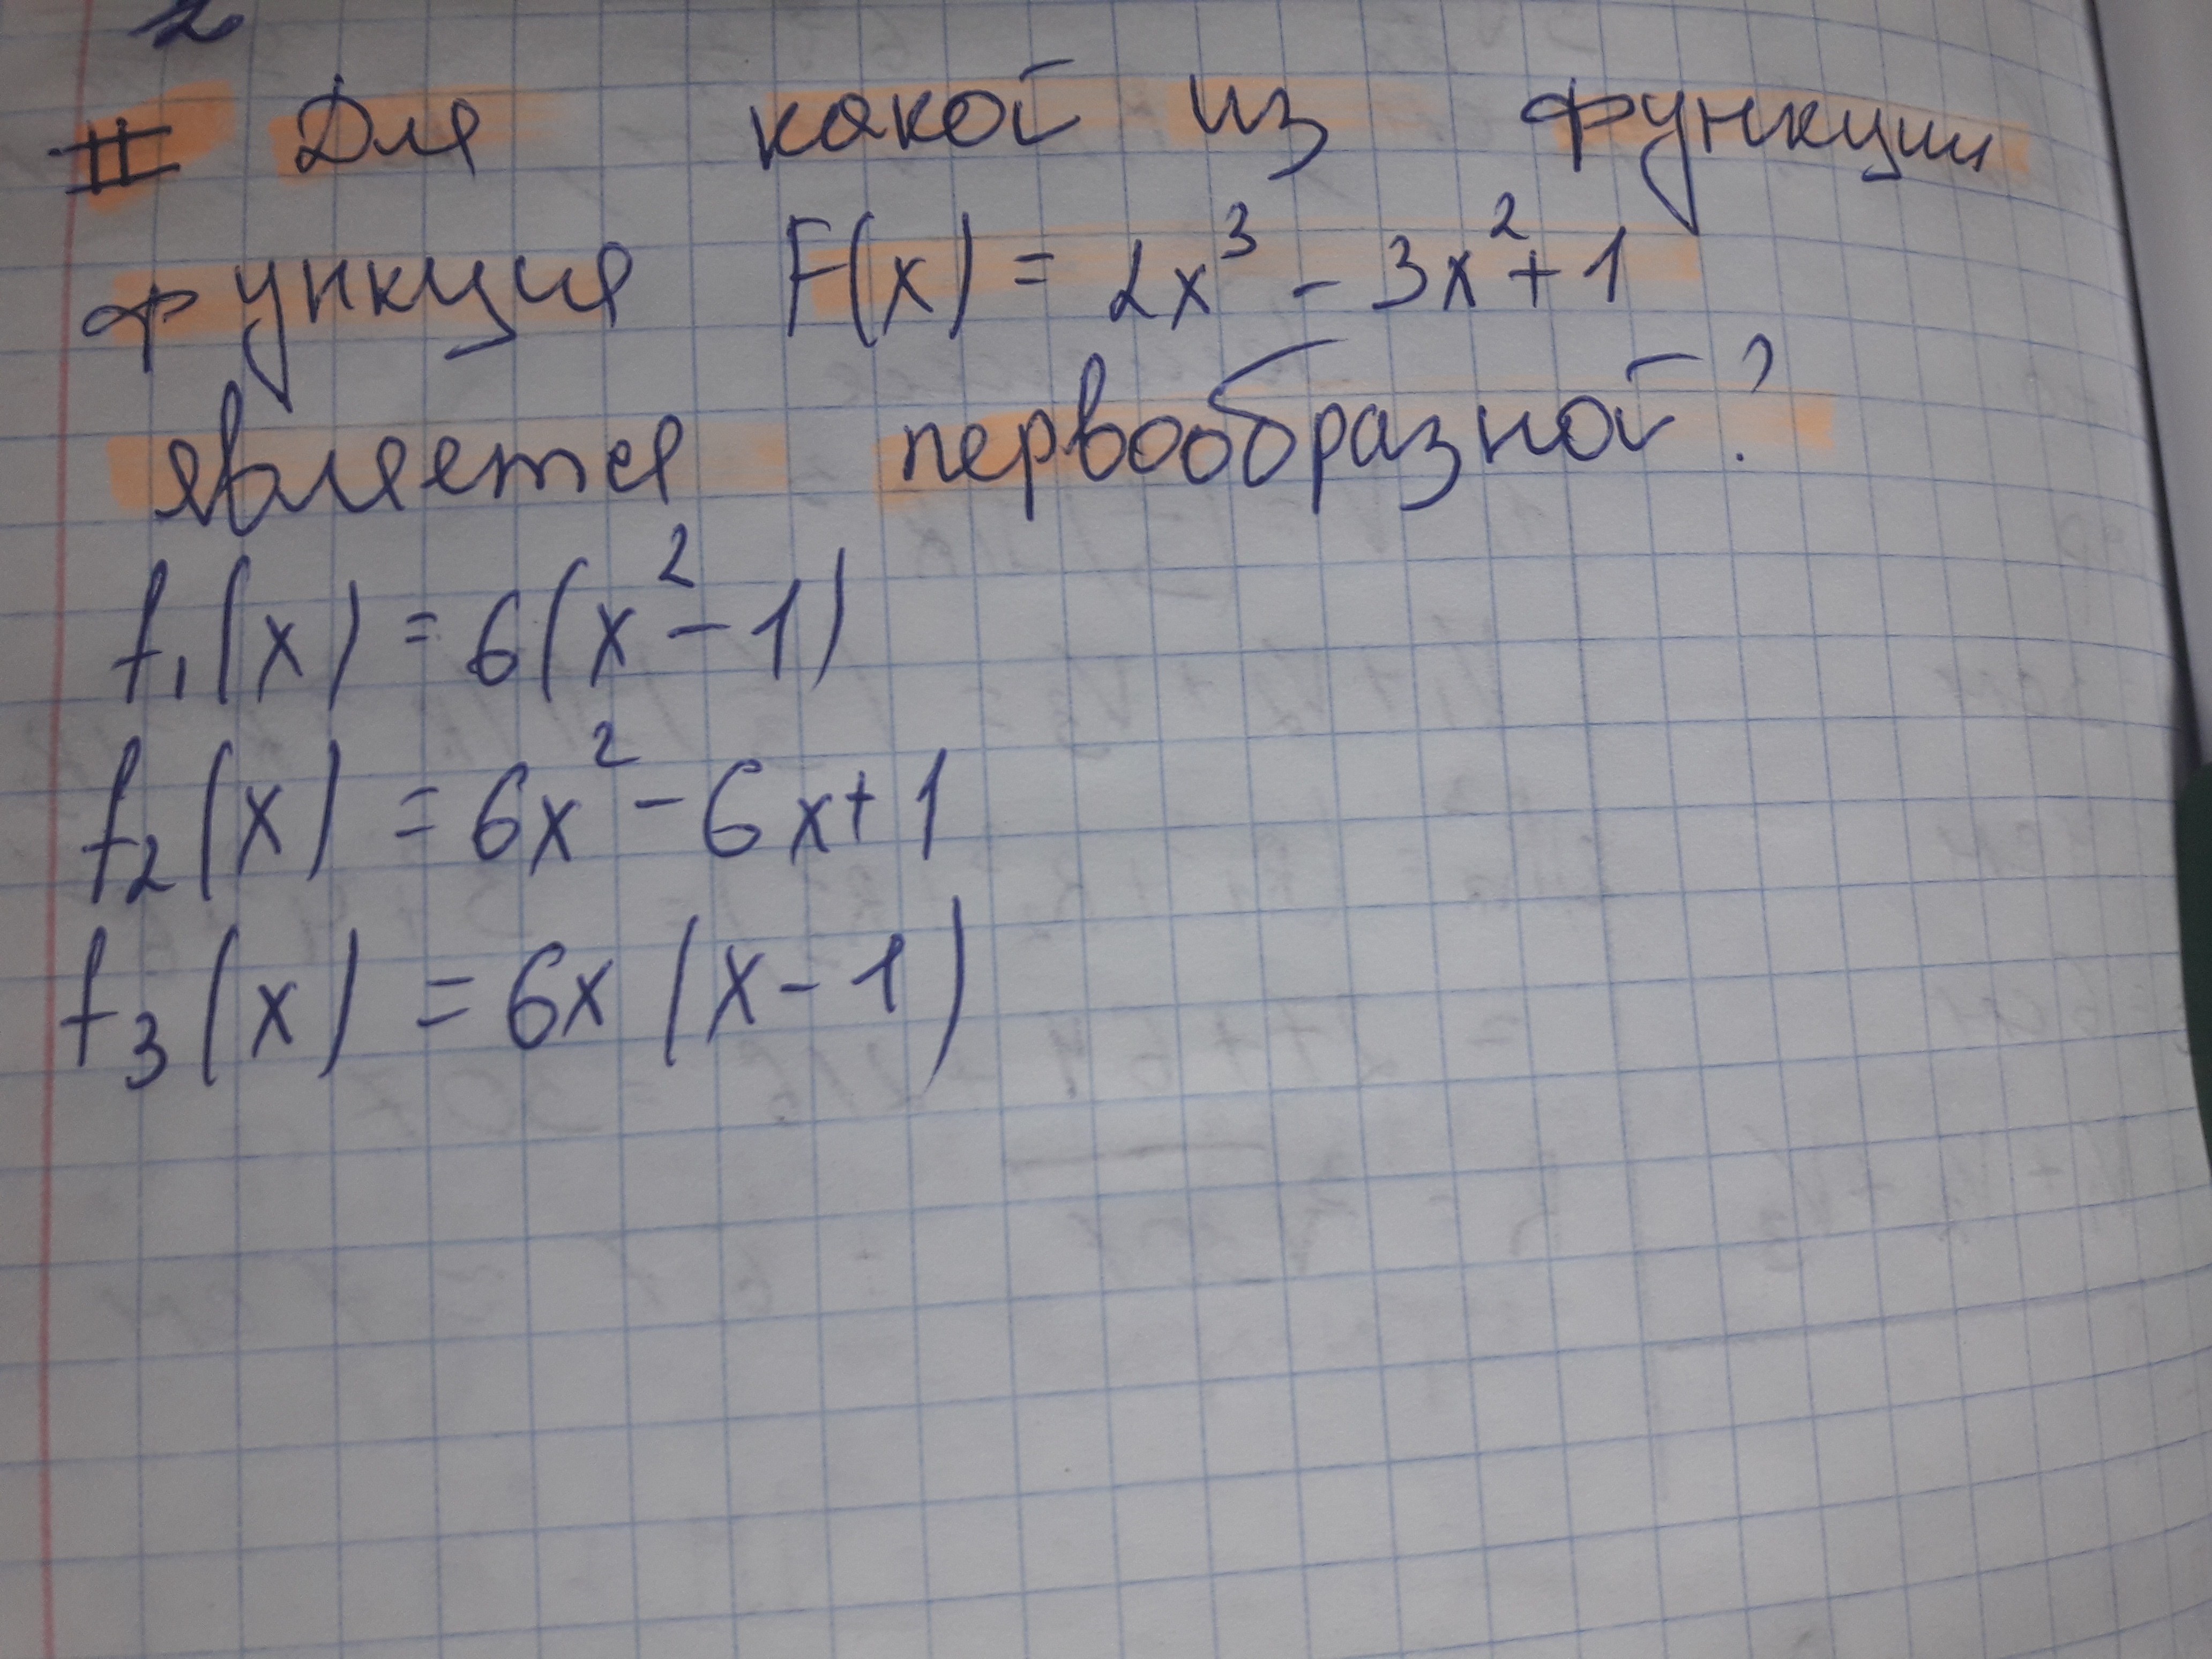 2
II Для какой из функции
функция F(x) = 2x³ - 3x² + 1
является первообразной?
f₁(x) = 6(x² - 1)
f₂(x) = 6x² - 6x + 1
f₃(x) = 6x(x - 1)